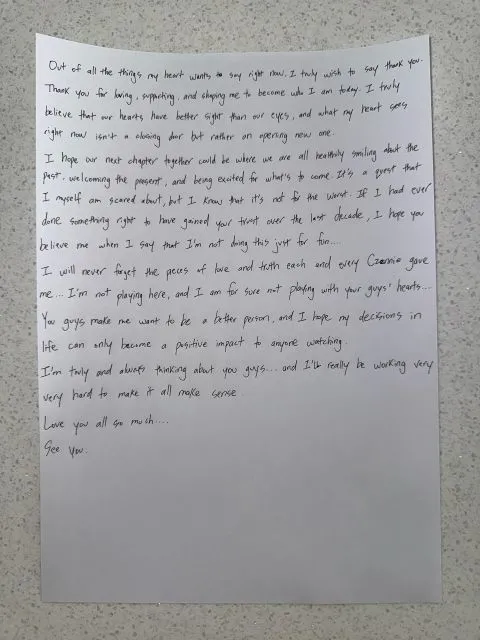 Out of all the things my heart wants to say right now, I truly wish to say thank you.
Thank you for loving, supporting, and shaping me to become who I am today. I truly
believe that our hearts have better sight than our eyes, and what my heart sees
right now isn't a closing door but rather an opening new one.
I hope our next chapter together could be where we are all healthily smiling about the
past, welcoming the present, and being excited for what's to come. It's a quest that
I myself am scared about, but I know that it's not for the worst. If I had ever
done something right to have gained your trust over the last decade, I hope you
believe me when I say that I'm not doing this just for fun....
I will never forget the pieces of love and truth each and every Czennie gave
me... I'm not playing here, and I am for sure not playing with your guys' hearts...
You guys make me want to be a better person, and I hope my decisions in
life can only become a positive impact to anyone watching.
I'm truly and always thinking about you guys... and I'll really be working very
very hard to make it all make sense.
Love you all so much....
See you.